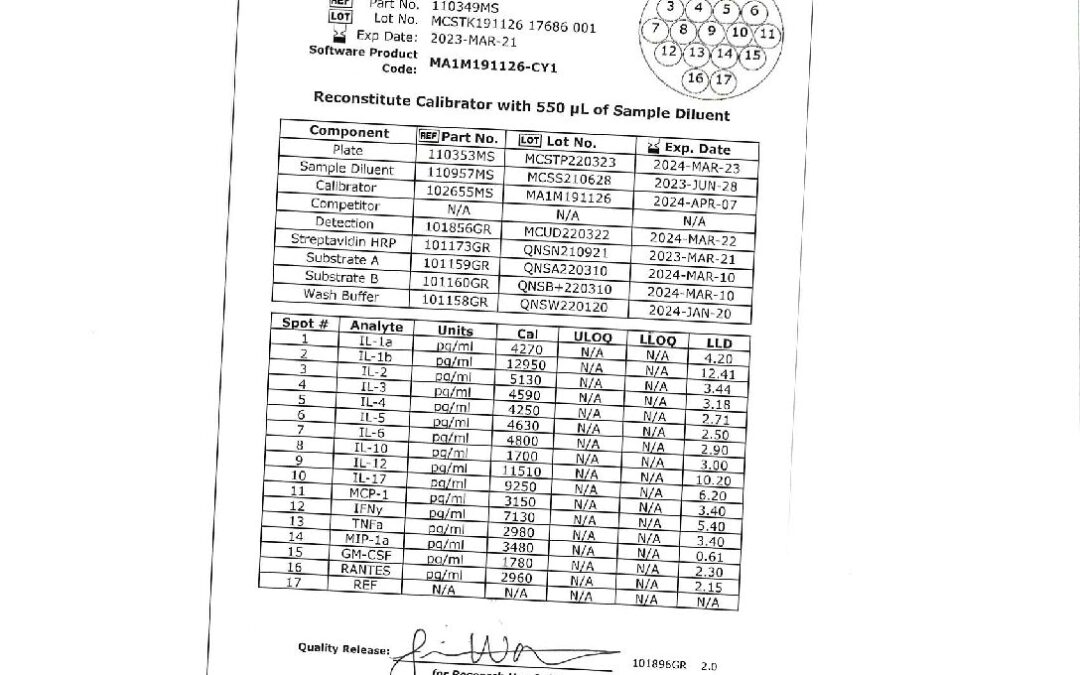 REF Part No. 110349MS
LOT Lot No. MCSTK191126 17686 001
Exp Date: 2023-MAR-21
Software Product Code: MA1M191126-CY1
3 4 5 6
7 8 9 10 11
12 13 14 15
16 17
Reconstitute Calibrator with 550 µL of Sample Diluent
Component REF Part No. LOT Lot No. Exp. Date
Plate 110353MS MCSTP220323 2024-MAR-23
Sample Diluent 110957MS MCSS210628 2023-JUN-28
Calibrator 102655MS MA1M191126 2024-APR-07
Competitor N/A N/A N/A
Detection 101856GR MCUD220322 2024-MAR-22
Streptavidin HRP 101173GR QNSN210921 2023-MAR-21
Substrate A 101159GR QNSA220310 2024-MAR-10
Substrate B 101160GR QNSB+220310 2024-MAR-10
Wash Buffer 101158GR QNSW220120 2024-JAN-20
Spot # Analyte Units Cal ULOQ LLOQ LLD
1 IL-1a pg/ml 4270 N/A N/A 4.20
2 IL-1b pg/ml 12950 N/A N/A 12.41
3 IL-2 pg/ml 5130 N/A N/A 3.44
4 IL-3 pg/ml 4590 N/A N/A 3.18
5 IL-4 pg/ml 4250 N/A N/A 2.71
6 IL-5 pg/ml 4630 N/A N/A 2.50
7 IL-6 pg/ml 4800 N/A N/A 2.90
8 IL-10 pg/ml 1700 N/A N/A 3.00
9 IL-12 pg/ml 11510 N/A N/A 10.20
10 IL-17 pg/ml 9250 N/A N/A 6.20
11 MCP-1 pg/ml 3150 N/A N/A 3.40
12 IFNy pg/ml 7130 N/A N/A 5.40
13 TNFa pg/ml 2980 N/A N/A 3.40
14 MIP-1a pg/ml 3480 N/A N/A 0.61
15 GM-CSF pg/ml 1780 N/A N/A 2.30
16 RANTES pg/ml 2960 N/A N/A 2.15
17 REF N/A N/A N/A N/A N/A
Quality Release: 101896GR 2.0